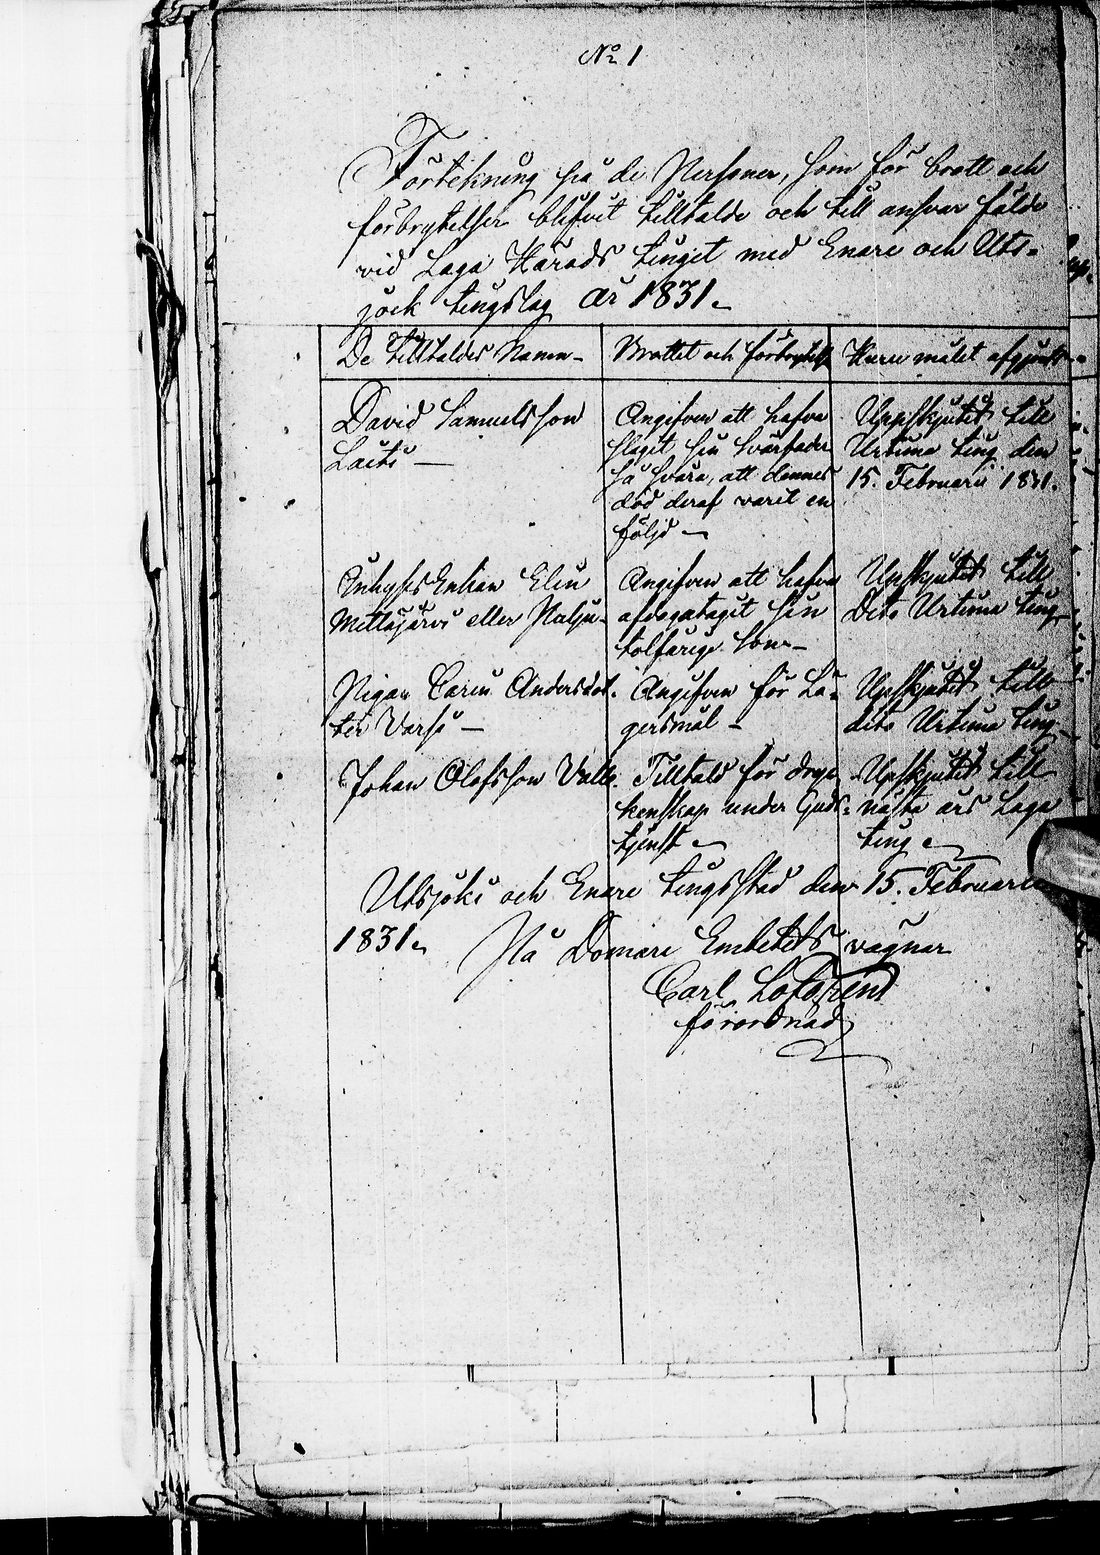 No 1
Förtekning på de Personer, som för brott och
förbrytelser blifvit tilltalde och till ansvar fälde
vid Laga Härads tinget med Enare och Uts-
jock tingslag år 1831.
De tilltaldes Namn-
Brottet och förbrytels
Huru målet afgjordt
David Samuelsson
Laiti -
Angifven att hafva
slagit sin Svärfader
så svåra, att dennes
död deraf varit en
följd -
Uppskjutit till
Urtima ting den
15. Februarii 1831.
Enkan Elin
eller
Angifven att hafva
sin
tolfårige Son-
Upskjutit till
Dito Urtima ting
Pigan Carin Andersdot-
ter Varsi -
Angifven för Lä-
gersmål -
Upskjutit till
dito Urtima ting
Johan Olofsson Valle
Tilltald för dryc-
kenskap under Guds-
tjenst
Upskjutit till
nästa års Laga
ting
Utsjoki och Enare tingsstad den 15. Februarii
1831. På Domare Embetets vägnar
Carl
förordnad